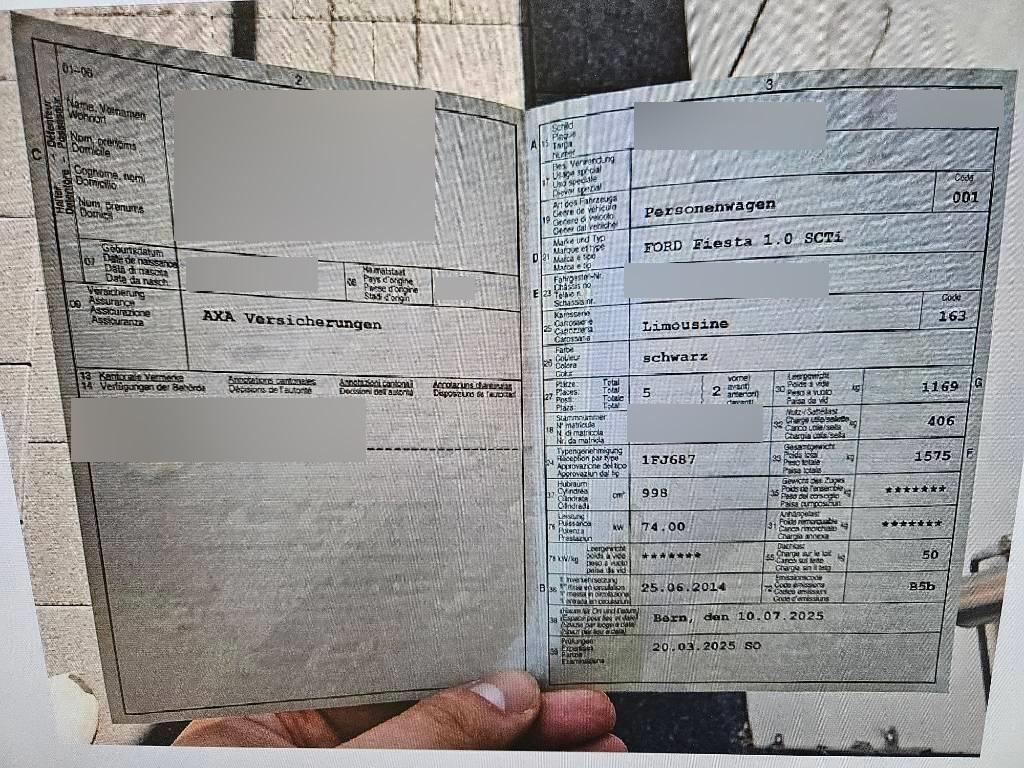 2
01-06
C
Halter - Détenteur
Detentore - Possessur
Name, Vornamen
Wohnort
Nom, prénoms
Domicile
Cognome, nomi
Domicilio
Num, prenums
Domicil
07
Geburtsdatum
Date de naissance
Data di nascita
Data da nasch.
08
Heimatstaat
Pays d'origine
Paese d'origine
Stadi d'origin
09
Versicherung
Assurance
Assicurazione
Assicuranza
AXA Versicherungen
13 Kantonale Vermerke
14 Verfügungen der Behörde
Annotations cantonales
Décisions de l'autorité
Annotazioni cantonali
Decisioni dell'autorità
Annotaziuns chantunalas
Disposiziuns da l'autoritad
3
A 15
Schild
Plaque
Targa
Numer
17
Bes. Verwendung
Usage spécial
Uso speciale
Diever spezial
19
Art des Fahrzeugs
Genre de véhicule
Genere di veicolo
Gener dal vehichel
Personenwagen
Code
001
D 21
Marke und Typ
Marque et type
Marca e tipo
Marca e tip
FORD Fiesta 1.0 SCTi
E 23
Fahrgestell-Nr.
Châssis no
Telaio n.
Schassis nr.
25
Karosserie
Carrosserie
Carrozzeria
Carossaria
Limousine
Code
163
26
Farbe
Couleur
Colore
Colur
schwarz
27
Plätze: Total
Places: Total
Posti: Totale
Plazs: Total
5
2
vorne)
avant)
anteriori)
davant)
30
Leergewicht
Poids à vide
Peso a vuoto
Paisa da vid
kg
1169
G
18
Stammnummer
N° matricule
N. di matricola
Nr. da matricla
32
Nutz-/Sattellast
Charge utile/sellette
Carico utile/sella
Chargia utila/sella
406
24
Typengenehmigung
Réception par type
Approvazione del tipo
Approvaziun dal tip
1FJ687
33
Gesamtgewicht
Poids total
Peso totale
Paisa totala
kg
1575
F
37
Hubraum
Cylindrée
Cilindrata
Cilindrada
cm³
998
35
Gewicht des Zuges
Poids de l'ensemble
Peso del convoglio
Paisa cumposiziun
kg
*******
76
Leistung
Puissance
Potenza
Prestaziun
kW
74.00
31
Anhängelast
Poids remorquable
Carico rimorchiabile
Chargia annexa
kg
*******
78 kW/kg
Leergewicht
poids à vide
peso a vuoto
paisa da vid
*******
55
Dachlast
Charge sur le toit
Carico sul tetto
Chargia sin il tetg
kg
50
B 36
1. Inverkehrsetzung
1re mise en circulation
1a messa in circolazione
1. entrada en circulaziun
25.06.2014
72
Emissionscode
Code émissions
Codice emissioni
Code d'emissiuns
B5b
38
(Raum für Ort und Datum)
(Espace pour lieu et date)
(Spazio per luogo e data)
(Spazi per lieu e data)
Bern, den 10.07.2025
39
Prüfungen
Expertises
Perizie
Examinaziuns
20.03.2025 SO